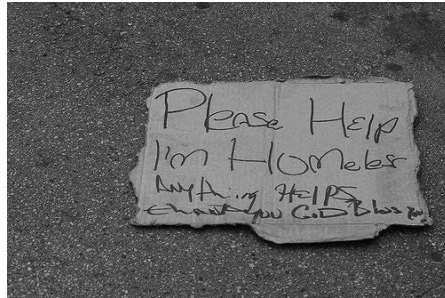 Please Help
I'm Homeless
Anything HELPS
thank you GOD Bless You